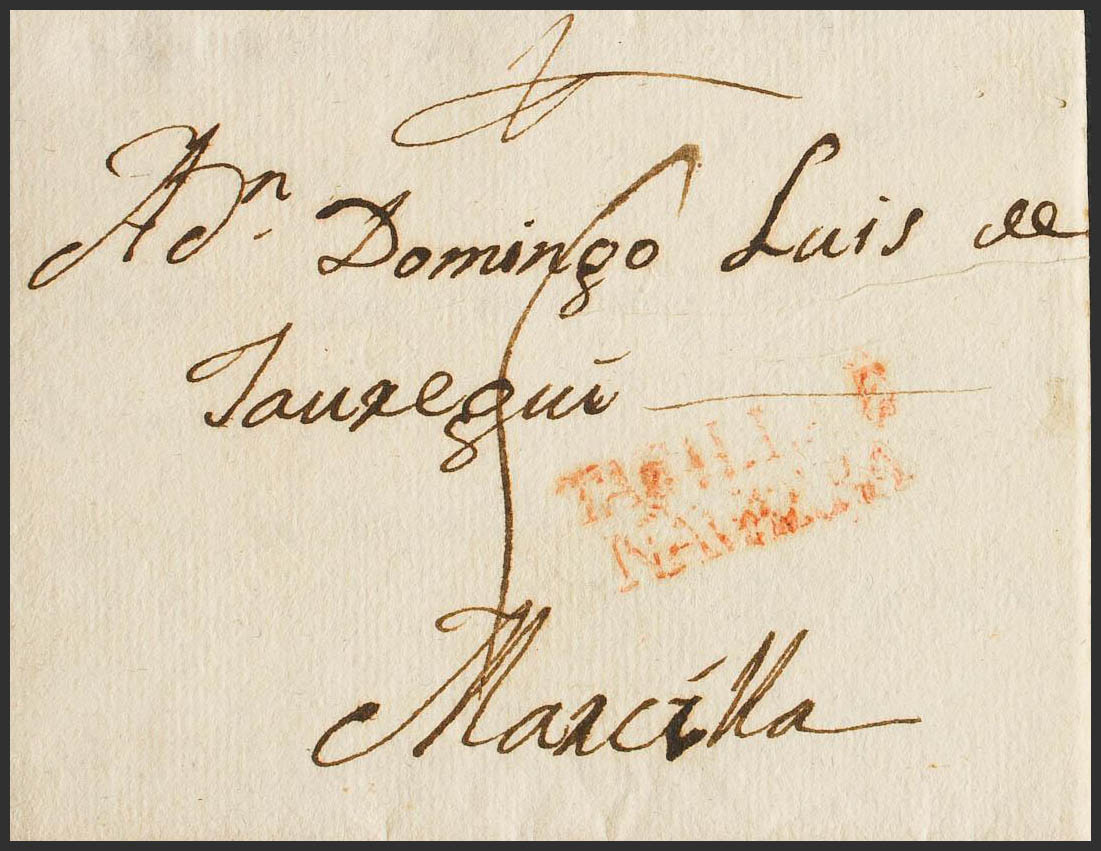 A Dn. Domingo Luis de
Jauregui
TAFALLA
NAVARRA
Marcilla